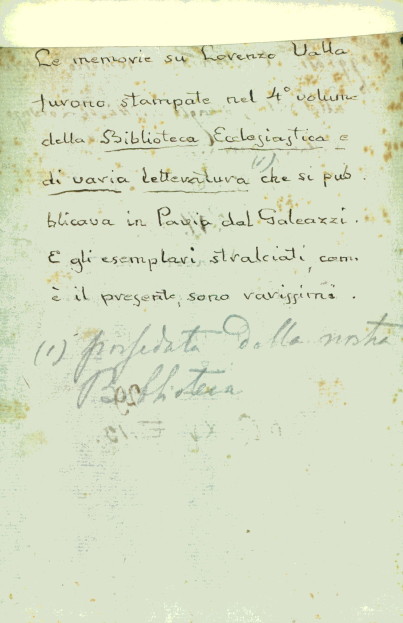 Le memorie su Lorenzo Valla
furono stampate nel 4° volume
della Biblioteca Ecclesiastica e
di varia letteratura (1) che si pub
blicava in Pavia dal Galeazzi.
E gli esemplari stralciati, com.
è il presente, sono rarissimi.
(1) posseduta dalla nostra
Biblioteca